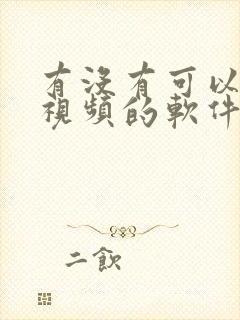 有沒有可以
視頻的軟件
二飲